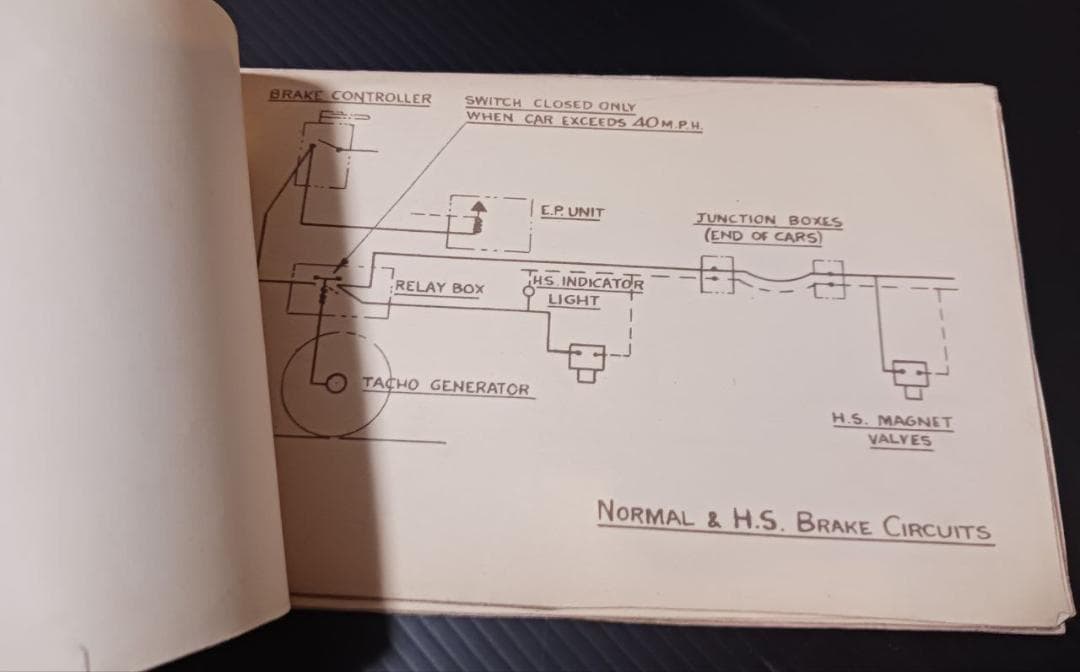 BRAKE CONTROLLER
SWITCH CLOSED ONLY
WHEN CAR EXCEEDS 40 M.P.H.
E.P. UNIT
JUNCTION BOXES
(END OF CARS)
RELAY BOX
H.S. INDICATOR
LIGHT
TACHO GENERATOR
H.S. MAGNET
VALVES
NORMAL & H.S. BRAKE CIRCUITS